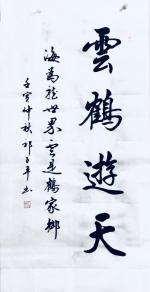 雲鶴遊天
海為龍世界雲是鶴家鄉
壬寅仲秋祁子平書